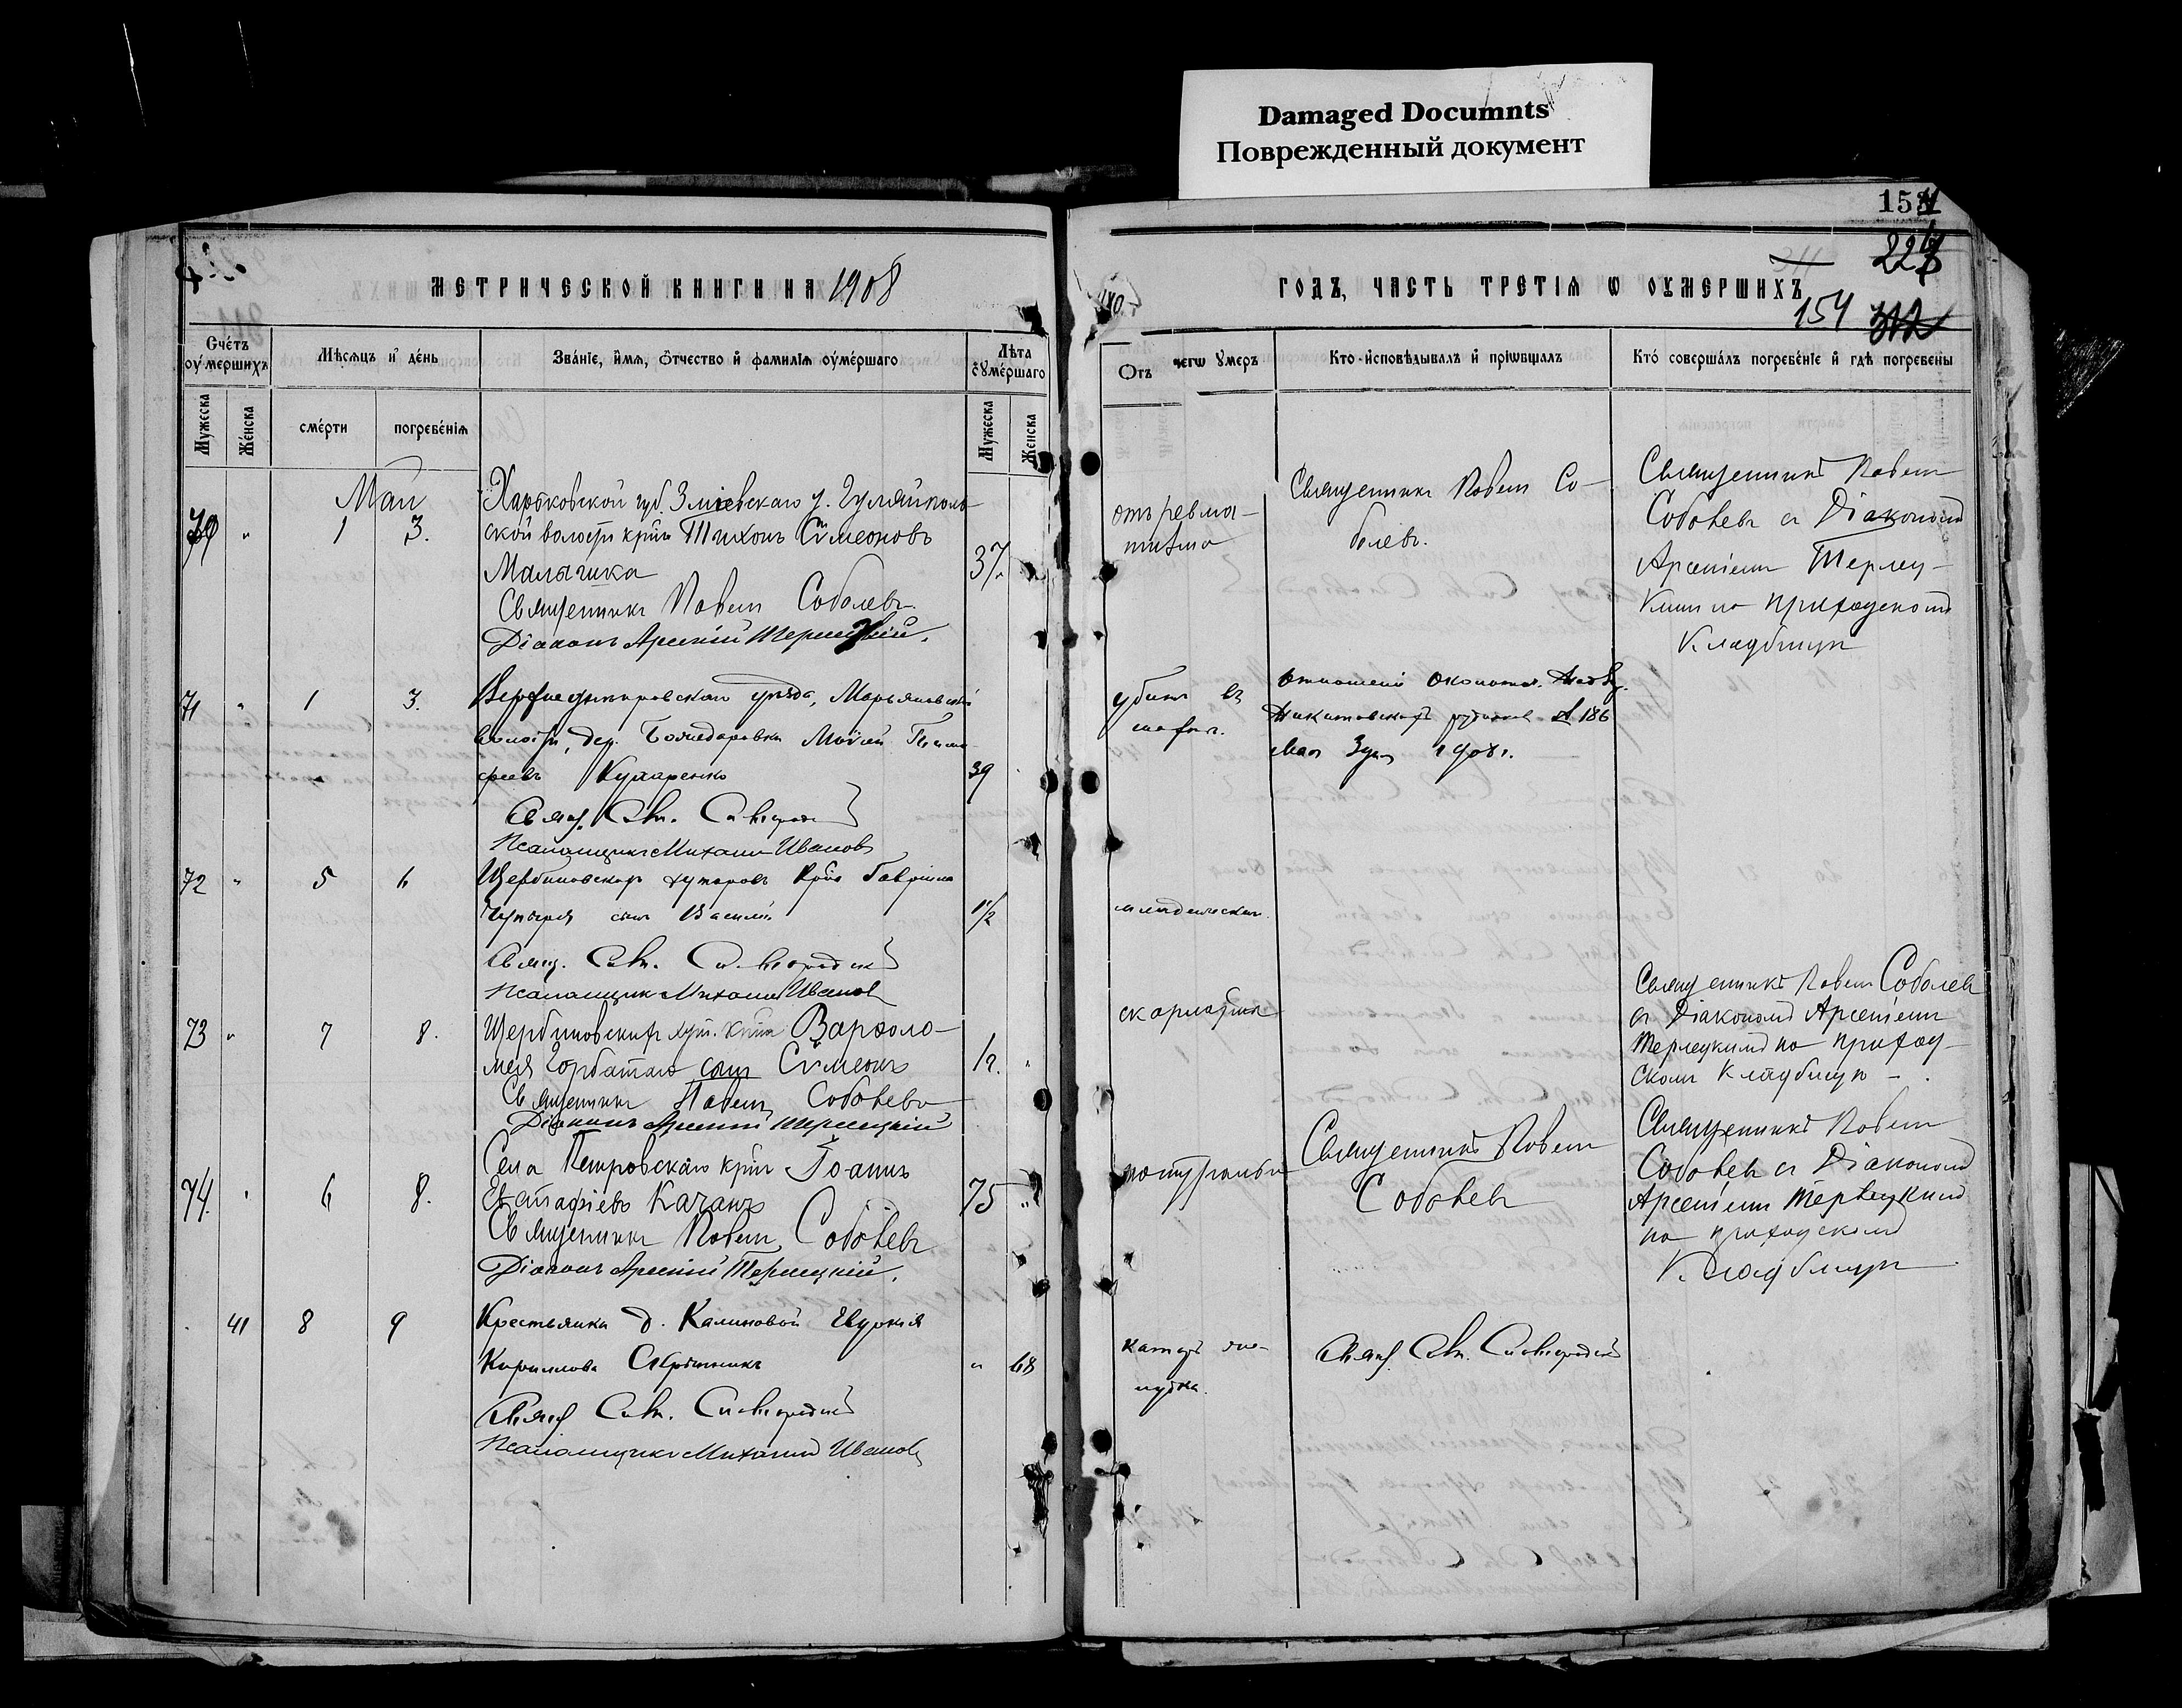 Damaged Documnts
Поврежденный документ
153
154
МЕТРИЧЕСКОЙ КНИГИ НА 1908
ГОДЪ, ЧАСТЬ ТРЕТІѦ Ѡ ОУМЕРШИХЪ
Счётъ оумершихъ
Мѣсѧцъ и день
Званіе, имѧ, ѿчество и фамиліѧ оумершаго
Лѣта оумершаго
Мужеска
Женска
смерти
погребеніѧ
Мужеска
Женска
Ѿтъ чегѡ оумеръ
Кто исповѣдывалъ и пріѡбщалъ
Кто совершалъ погребеніе и гдѣ погребены
Май
70 " 1 3.
Харьковской губ. Зміевскаго у. Гуляйполь-
ской волости крнъ Тихонъ Сѵмеоновъ
Малышка
37
Священникъ Павелъ Соболевъ
Діаконъ Арсеній Терлецкій.
отъ ревма-
тизма
Священникъ Павелъ Со-
болевъ.
Священникъ Павелъ
Соболевъ съ Діакономъ
Арсеніемъ Терлец-
кимъ на приходскомъ
кладбищѣ
71 " 1 3.
Верхнеднѣпровскаго уѣзда, Марьяновской
волости, дер.
Кухаренко
39
Свящ.
Псаломщикъ Михаилъ Ивановъ
убитъ въ
шахтѣ.
отношеніе
Никитовскаго рудника № 186
Мая 3 дня 1908 г.
72 " 5 6
Щербиновскихъ хуторовъ крнъ Гавріила
сынъ Василій
1 1/2
Свящ.
Псаломщикъ Михаилъ Ивановъ
младенческая
73 " 7 8.
Щербиновскихъ хут. крнъ Варѳоло-
мея Горбатаго сынъ Сѵмеонъ
1 г. "
Священникъ Павелъ Соболевъ
Діаконъ Арсеній Терлецкій
скарлатина
Священникъ Павелъ Соболевъ
съ Діакономъ Арсеніемъ
Терлецкимъ на приход-
скомъ кладбищѣ
74. " 6 8.
Села Петровскаго крнъ Іоаннъ
Евстафіевъ Качанъ
75 "
Священникъ Павелъ Соболевъ
Діаконъ Арсеній Терлецкій.
натуральн
Священникъ Павелъ
Соболевъ
Священникъ Павелъ
Соболевъ съ Діакономъ
Арсеніемъ Терлецкимъ
на приходскомъ
кладбищѣ
41 8 9
Крестьянка д. Калиновой Евдокія
Кириллова
" 68
Свящ.
Псаломщикъ Михаилъ Ивановъ
катаръ же-
лудка.
Свящ.